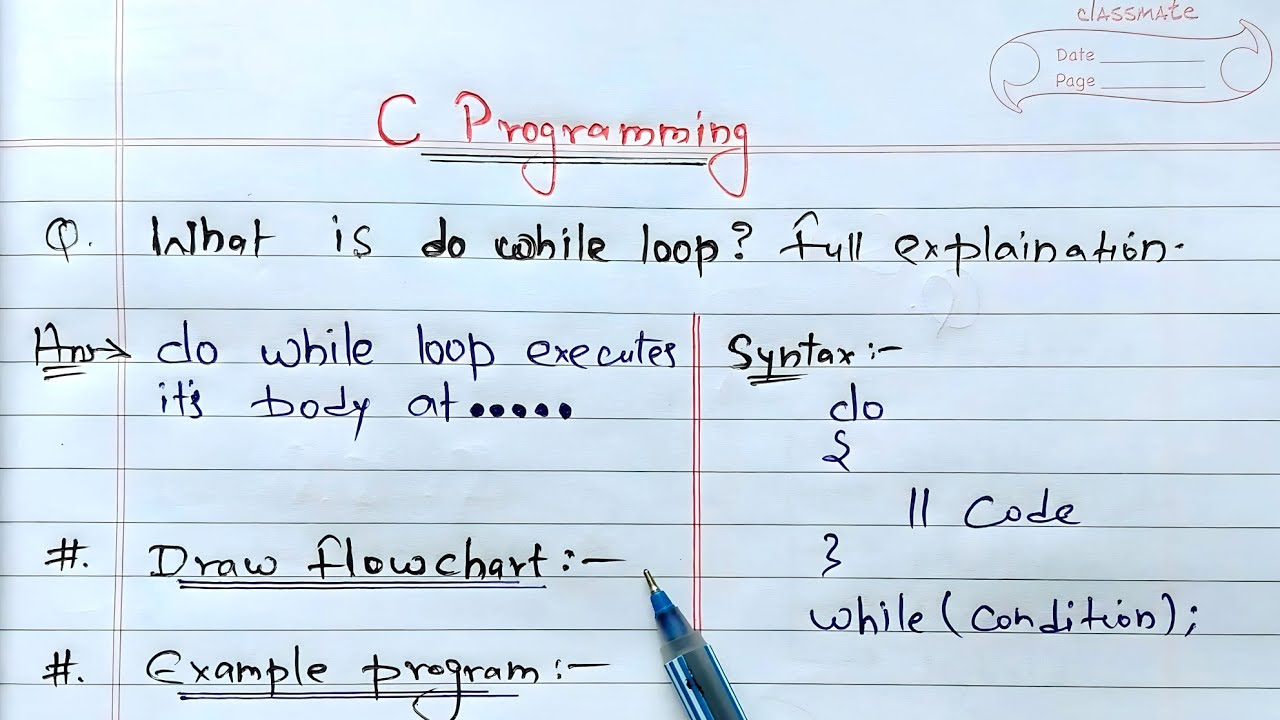 classmate
Date
Page
C Programming
Q. What is do while loop? full explaination.
Ans→ do while loop executes
it's body at.....
Syntax:-
do
{
// Code
}
while (condition);
#. Draw flowchart:-
#. Example program:-